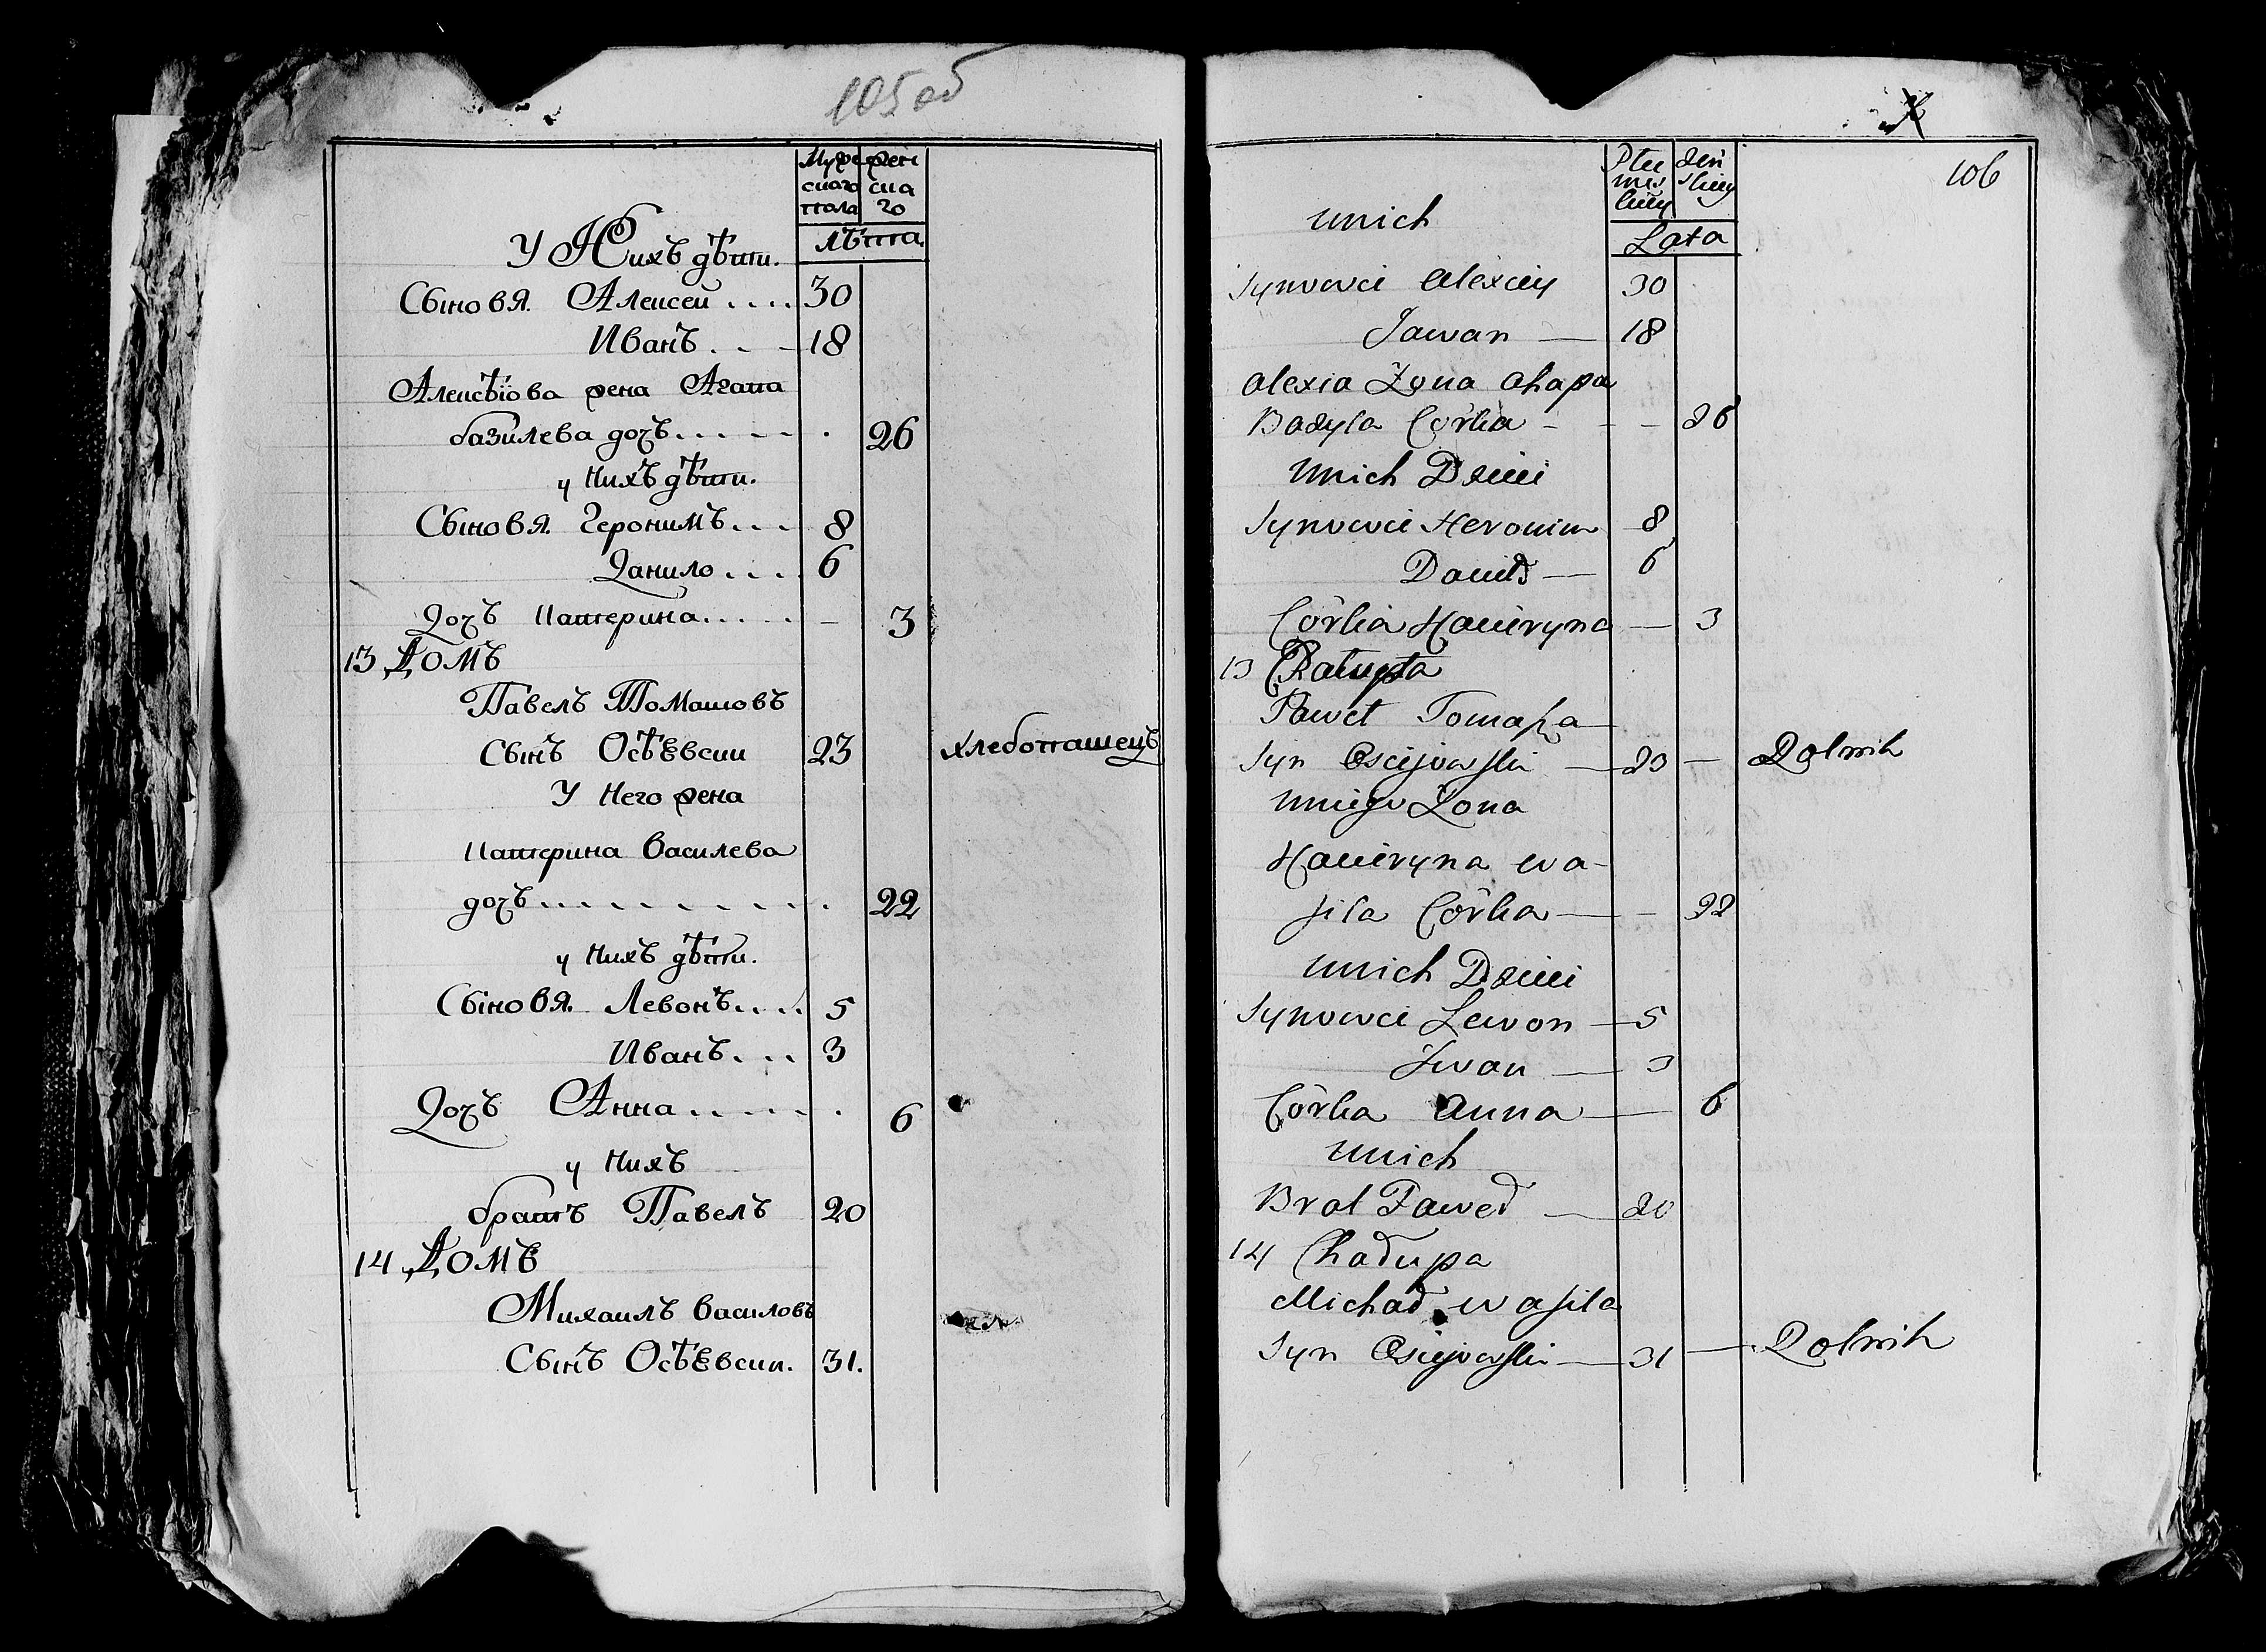 105 об
Мужескаго пола
женскаго
лѣта.
У Нихъ дѣти.
Сыновя. Алексей .... 30
Иванъ. . - 18
Алексѣйова жена Агапа
базилева дочъ..... . 26
у Нихъ дѣти.
Сыновя. Героnимъ... 8
Данило.... 6
Дочъ Катерина..... - 3
13 ДОМЪ
Павелъ Томашовъ
Сынъ Осѣевски 23 хлебопашецъ
У Него жена
Катерина Василева
дочъ......... . 22
у Нихъ дѣти.
Сыновя. Левонъ.... 5
Иванъ... 3
Дочъ Анна..... . 6
у Нихъ
братъ Павелъ 20
14 ДОМЪ
Михаилъ Василовъ
Сынъ Осѣевски. 31.
106
Płci męs kiey
żeń skiey
Lata
unich
Synowie Alexiey 30
Jawan — 18
Alexia Żona Ahapa
Bazyla Córka - - - 26
unich Dzieci
Synowie Heronim 8
Daniło — 6
Córka Kacieryna — 3
13 Chałupa
Paweł Tomasza
Syn Osiejewski — 23 — Rolnik
uniego Żona
Kacieryna Wa-
sila Córka — - 22
unich Dzieci
Synowie Lewon — 5
Jwan — 3
Córka Anna — 6
unich
Brat Paweł — 20
14 Chałupa
Michał Wasila
Syn Osiejewski — 31 — Rolnik